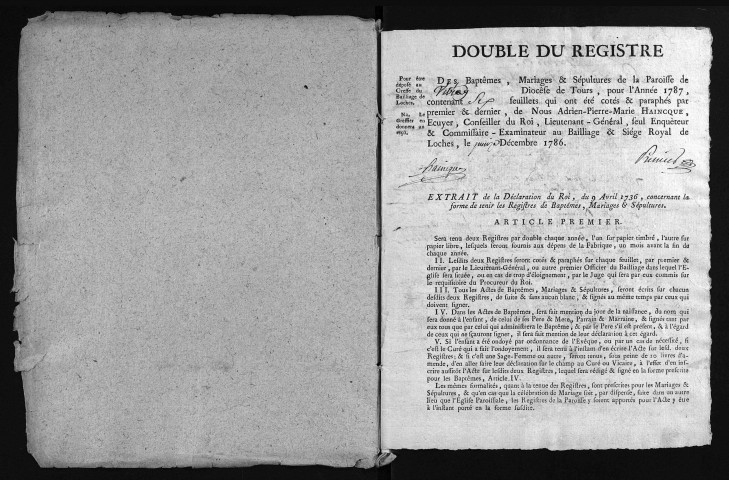 DOUBLE DU REGISTRE
Pour être
déposé au
Greffe du
Bailliage de
Loches.
Na. Le
Greffier en
donnera un
reçu.
DES Baptêmes, Mariages & Sépultures de la Paroisse de
Diocèse de Tours, pour l'Année 1787,
contenant Six feuillets qui ont été cotés & paraphés par
premier & dernier, de Nous Adrien-Pierre-Marie HAINCQUE,
Ecuyer, Conseiller du Roi, Lieutenant-Général, seul Enquêteur
& Commissaire-Examinateur au Bailliage & Siége Royal de
Loches, le Décembre 1786.
Haincque
Premier
EXTRAIT de la Déclaration du Roi, du 9 Avril 1736, concernant la
forme de tenir les Registres de Baptêmes, Mariages & Sépultures.
ARTICLE PREMIER.
Sera tenu deux Registres par double chaque année, l'un sur papier timbré, l'autre sur
papier libre, lesquels seront fournis aux dépens de la Fabrique, un mois avant la fin de
chaque année.
II. Lesdits deux Registres seront cotés & paraphés sur chaque feuillet, par premier &
dernier, par le Lieutenant-Général, ou autre premier Officier du Bailliage dans lequel l'E-
glise sera située, ou en cas de trop d'éloignement, par le Juge qui sera par eux commis sur
le requisitoire du Procureur du Roi.
III. Tous les Actes de Baptêmes, Mariages & Sépultures, seront écrits sur chacun
desdits deux Registres, de suite & sans aucun blanc, & signés au même temps par ceux qui
doivent signer.
IV. Dans les Actes de Baptêmes, sera fait mention du jour de la naissance, du nom qui
sera donné à l'enfant, de celui de ses Pere & Mere, Parrain & Marraine, & signés tant par
eux tous que par celui qui administrera le Baptême, & par le Pere s'il est présent, & à l'égard
de ceux qui ne sçauront signer, il sera fait mention de leur déclaration à cet égard.
V. Si l'enfant a été ondoyé par ordonnance de l'Evêque, ou par un cas de nécessité, si
c'est le Curé qui a fait l'ondoyement, il sera tenu à l'instant d'en écrire l'Acte sur lesd. deux
Registres; & si c'est une Sage-Femme ou autre, seront tenus, sous peine de 10 livres d'a-
mende, d'en aller faire leur déclaration sur le champ au Curé ou Vicaire, à l'effet d'en ins-
crire aussitôt l'Acte sur lesdits deux Registres, lequel sera rédigé & signé en la forme prescrite
pour les Baptêmes, Article IV.
Les mêmes formalités, quant à la tenue des Registres, sont prescrites pour les Mariages &
Sépultures, & qu'en cas que la célébration de Mariage soit, par dispense, faite dans un autre
lieu que l'Eglise Paroissiale, les Registres de la Paroisse y soient apportés pour l'Acte y être
à l'instant porté en la forme susdite.